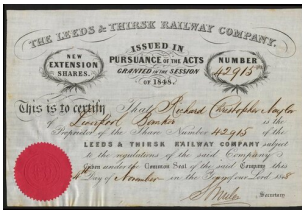 THE LEEDS & THIRSK RAILWAY COMPANY.
NEW EXTENSION SHARES.
ISSUED IN
PURSUANCE OF THE ACTS
GRANTED IN THE SESSION
OF 1848.
NUMBER
42915
This is to certify That Richard Christopher Naylor
of Liverpool Banker is the
Proprietor of the Share Number 42915 of the
LEEDS & THIRSK RAILWAY COMPANY subject
to the regulations of the said Company
Given under the Common Seal of the said Company this
Day of November in the Year of our Lord 1848
Secretary